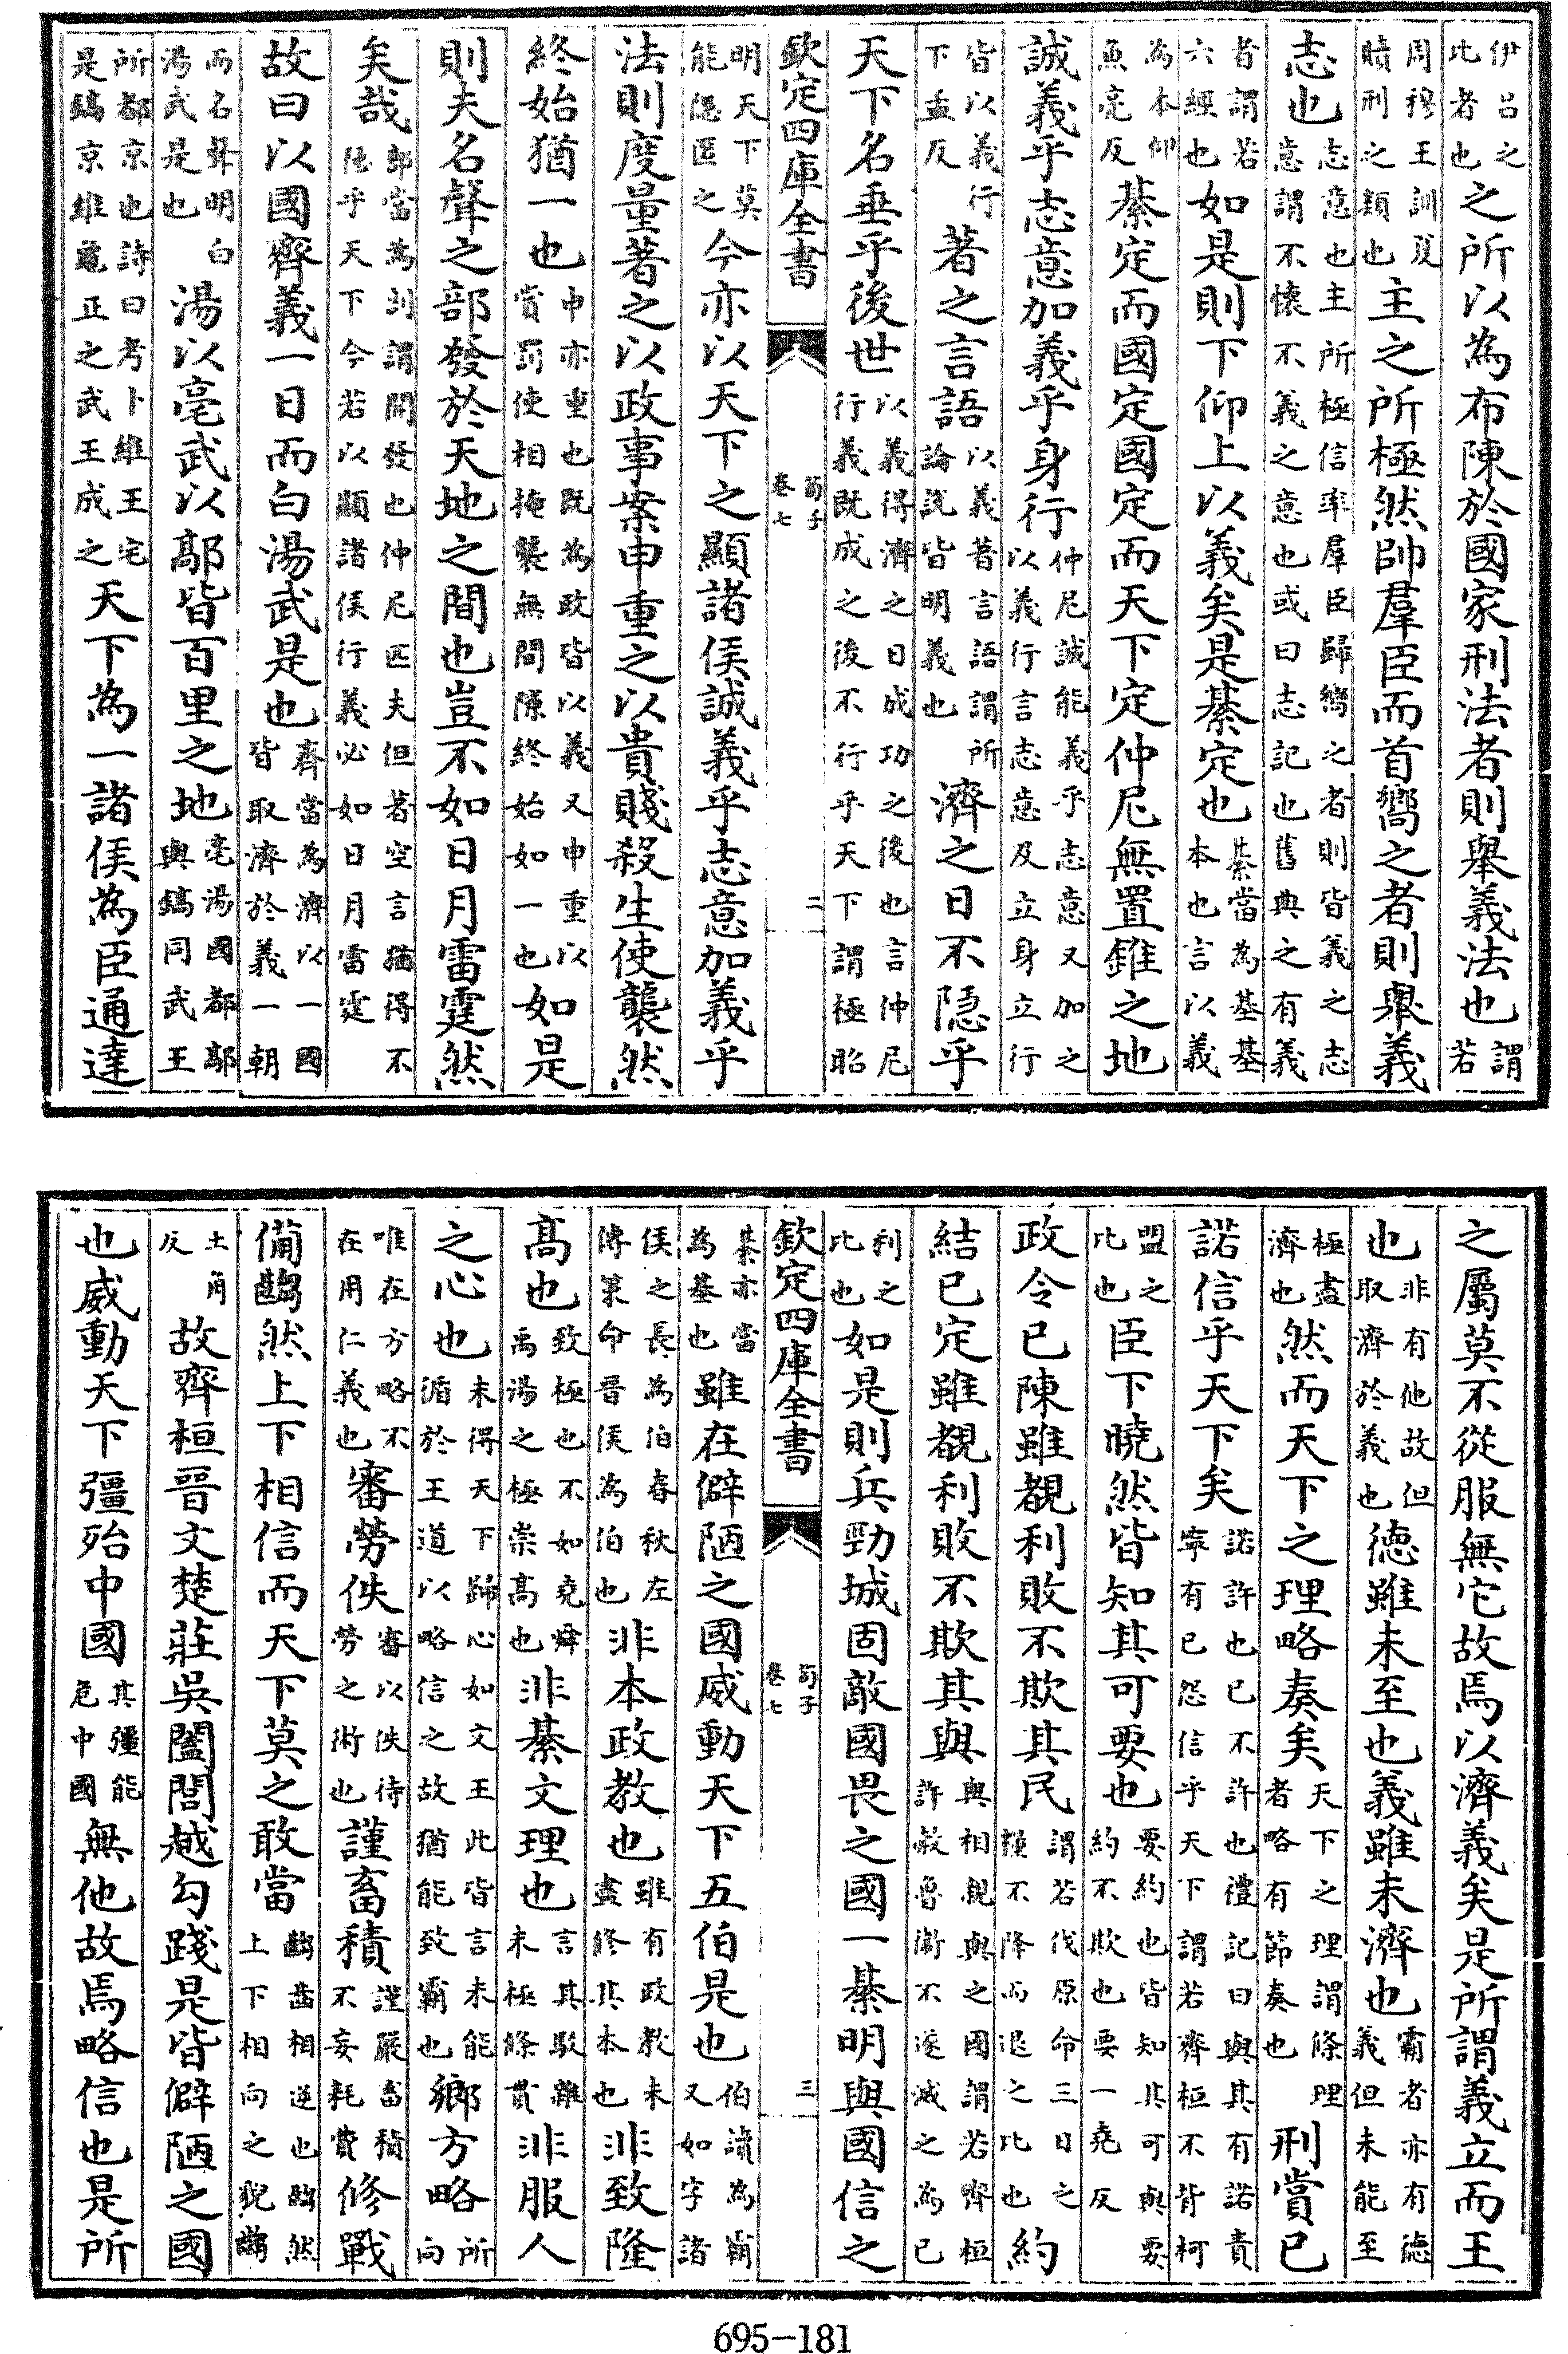 伊呂之比者也之所以為布陳於國家刑法者則舉義法也謂若
周穆王訓夏贖刑之類也主之所極然帥羣臣而首嚮之者則舉義
志也志意也主所極信率羣臣歸嚮之者則皆義之志意謂不懷不義之意也或曰志記也舊典之有義
者謂若六經也如是則下仰上以義矣是綦定也綦當為基基本也言以義
為本仰魚亮反綦定而國定國定而天下定仲尼無置錐之地
誠義乎志意加義乎身行仲尼誠能義乎志意又加之以義行言志意及立身立行
皆以義行下孟反著之言語以義著言語謂所論說皆明義也濟之日不隠乎
天下名垂乎後世以義得濟之日成功之後也言仲尼行義既成之後不行乎天下謂極昭
欽定四庫全書 荀子卷七 二
明天下莫能隠匿之今亦以天下之顯諸侯誠義乎志意加義乎
法則度量著之以政事案申重之以貴賤殺生使襲然
終始猶一也申亦重也既為政皆以義又申重以賞罰使相掩襲無間隙終始如一也如是
則夫名聲之部發於天地之間也豈不如日月雷霆然
矣哉部當為剖謂開發也仲尼匹夫但著空言猶得不隠乎天下今若以顯諸侯行義必如日月雷霆
故曰以國齊義一日而白湯武是也齊當為濟以一國皆取濟於義一朝
而名聲明白湯武是也湯以亳武以鄗皆百里之地亳湯國都鄗與鎬同武王
所都京也詩曰考卜維王宅是鎬京維龜正之武王成之天下為一諸侯為臣通達
之屬莫不從服無它故焉以濟義矣是所謂義立而王
也非有他故但取濟於義也徳雖未至也義雖未濟也霸者亦有徳義但未能至
極盡濟也然而天下之理略奏矣天下之理謂條理者略有節奏也刑賞已
諾信乎天下矣諾許也已不許也禮記曰與其有諾責寧有已怨信乎天下謂若齊桓不背柯
盟之比也臣下曉然皆知其可要也要約也皆知其可與要約不欺也要一堯反
政令已陳雖覩利敗不欺其民謂若伐原命三日之糧不降而退之比也約
結已定雖覩利敗不欺其與與相親與之國謂若齊桓許赦魯衞不遂滅之為已
利之比也如是則兵勁城固敵國畏之國一綦明與國信之
欽定四庫全書 荀子卷七 三
綦亦當為基也雖在僻陋之國威動天下五伯是也伯讀為霸又如字諸
侯之長為伯春秋左傳策命晉侯為伯也非本政教也雖有政教未盡修其本也非致隆
髙也致極也不如堯舜禹湯之極崇髙也非綦文理也言其駁雜未極條貫非服人
之心也未得天下歸心如文王此皆言未能循於王道以略信之故猶能致霸也鄉方略所向
唯在方略不在用仁義也審勞佚審以佚待勞之術也謹畜積謹嚴畜積不妄耗費修戰
備齺然上下相信而天下莫之敢當齺齒相迎也齺然上下相向之貌齺
士角反故齊桓晉文楚莊吳闔閭越勾踐是皆僻陋之國
也威動天下彊殆中國其彊能危中國無他故焉略信也是所
695-181